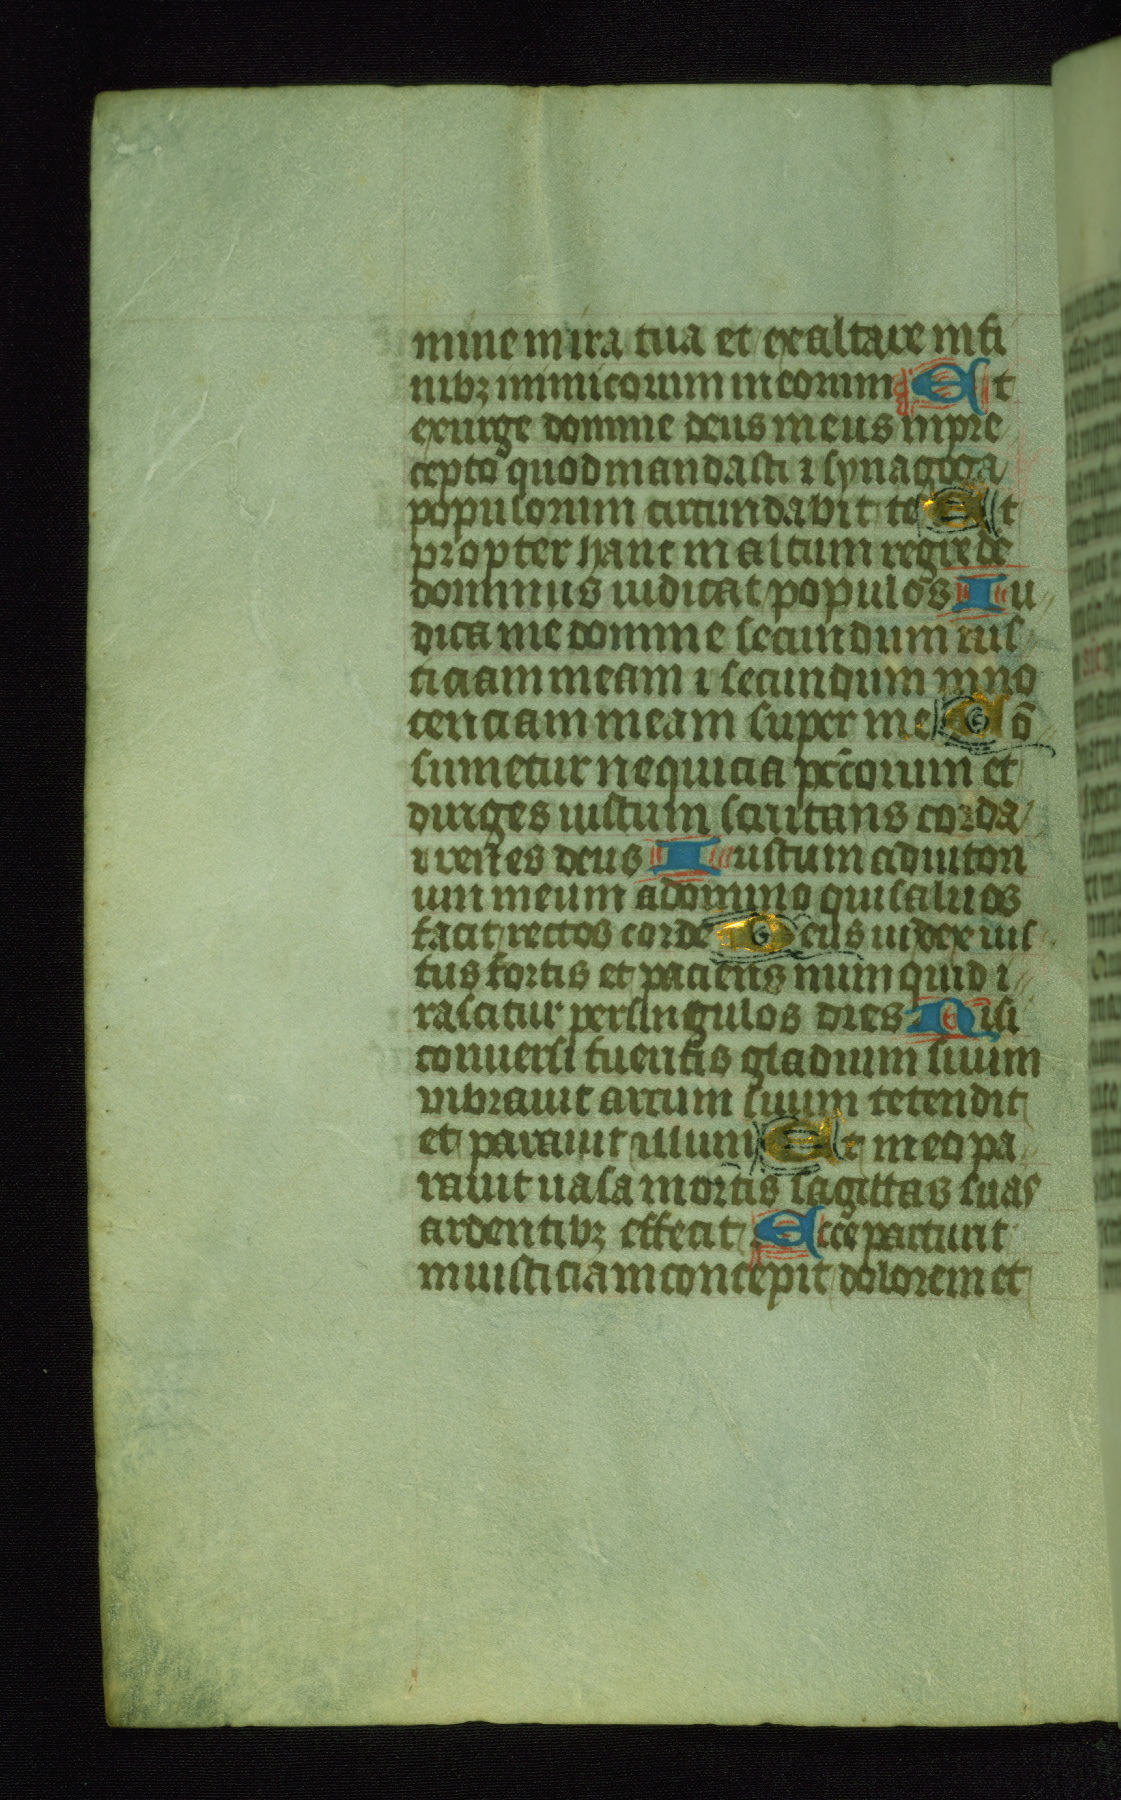 mine in ira tua et exaltare in fi
nibꝫ inimicorum meorum Et
exurge domine deus meus in pre
cepto quod mandasti ⁊ synagoga
populorum circundabit te Et
propter hanc in altum regrede
dominus iudicat populos Iu
dica me domine secundum ius
ticiam meam ⁊ secundum inno
cenciam meam super me Cō
sumetur nequicia pctōrum et
diriges iustum scrutans corda
⁊ renes deus Iustum adiutori
um meum a domino qui saluos
facit rectos corde Deus iudex ius
tus fortis et paciens num quid i
rascitur per singulos dies Nisi
conuersi fueritis gladium suum
vibrauit arcum suum tetendit
et parauit illum Et in eo pa
rauit uasa mortis sagittas suas
ardentibꝫ effecit Ecce parturit
iniusticiam concepit dolorem et